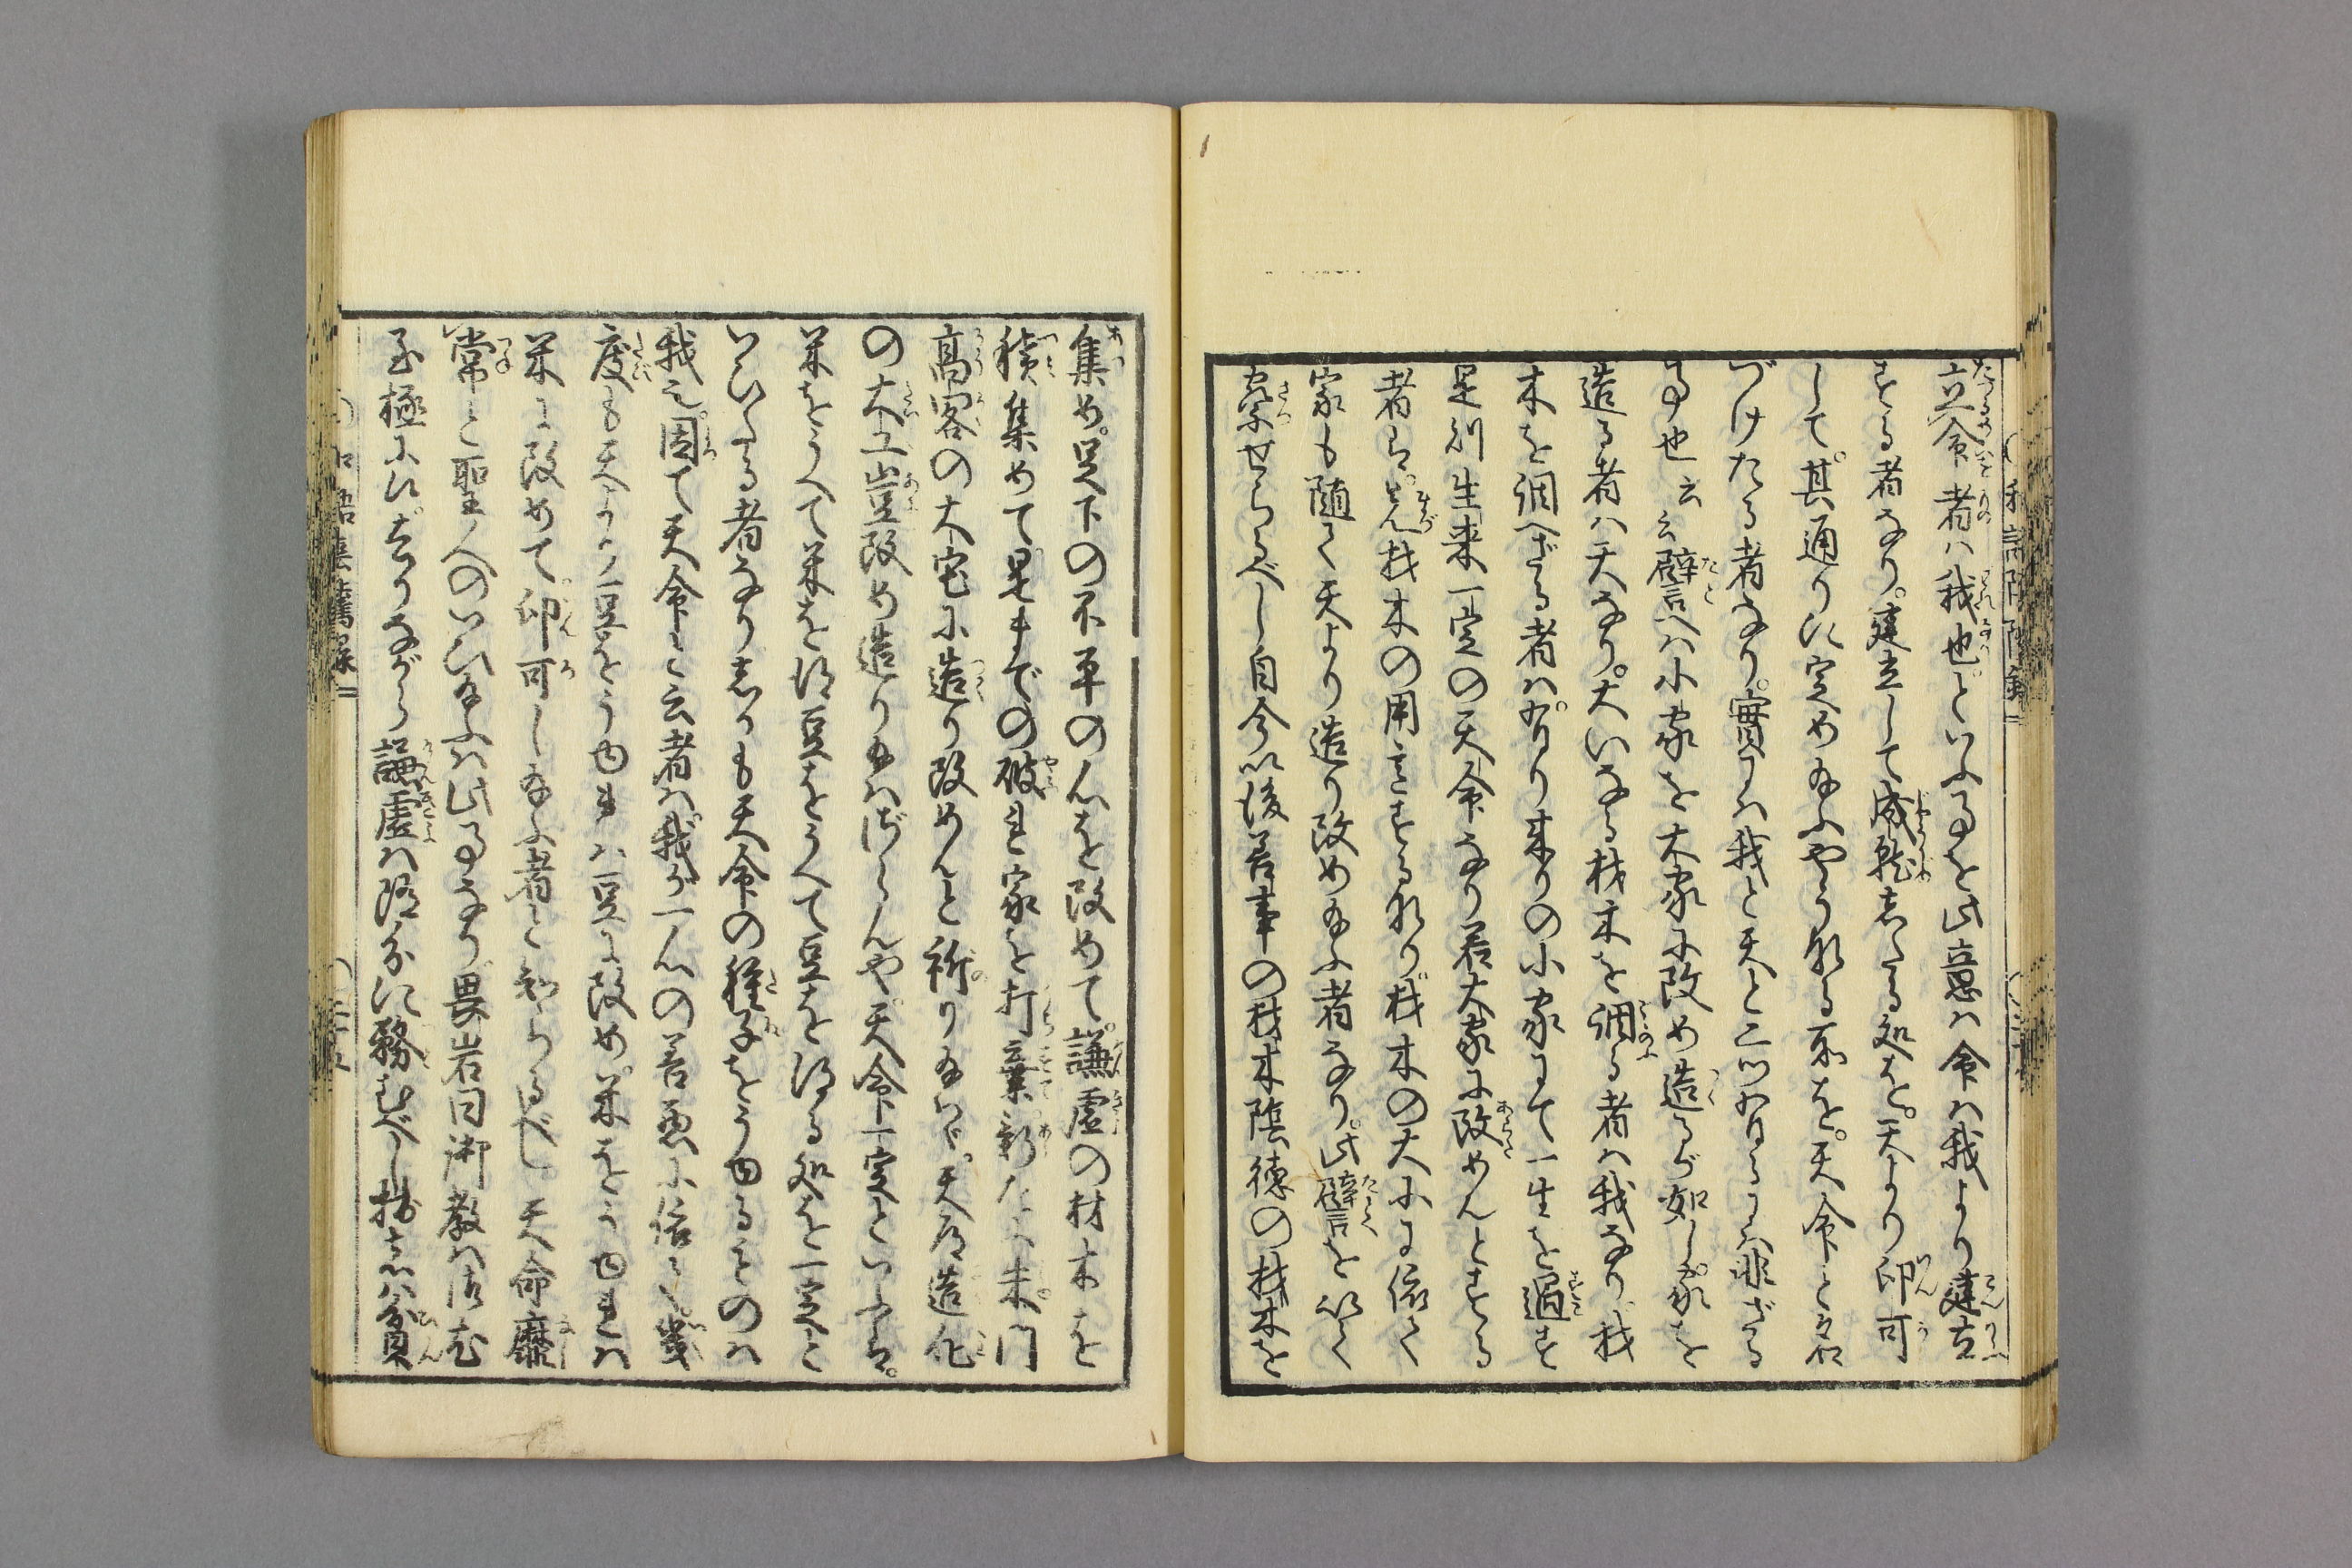 立命者ハ我也といふ事を此意ハ命ハ我より建立
する者なり。建立して成就したる処を。天より印可
して。其通りに定め給ふやうなる所を。天命とは名
づけたる者なり。實ハ我と天と二ツ有るにハ非ざる
事也云云譬へハ小家を大家に改め造るが如し。家を
造る者ハ天なり。大いなる材木を調る者ハ我なり。材
木を調へざる者ハ。有り来りの小家にて一生を過す
是則生来一定の天命なり若大家に改めんとする
者ら。先材木の用意する也。材木の大小に依て
家も随て天より造り改め給ふ者なり。此譬を以て
察せらるべし自今以後善事の材木陰徳の材木を
集め。足下の不平の心を改めて。謙虚の材木を
積集めて。是までの破れ家を打棄新たに朱門
高閣の大宅に造り改めんと祈り給ハヾ。天道造化
の大工豈改め造り給ハざらんや。天命一定といふハ。
米をうへて米を得豆をうへて豆を得る処を一定と
いひたる者なりしかも天命の種子をうゆるものハ
我也。固て天命と云者ハ。我が一心の善悪に倍て。幾
度も天より豆をうゆれハ豆に改め。米をうゆれハ
米に改めて。印可し給ふ者と知らるべし。天命靡
常と聖人のいひ給ふハ此事なり畏岩曰御教ハ
至極に候。さりながら謙虚ハ随分に務むべし拙者ハ貧